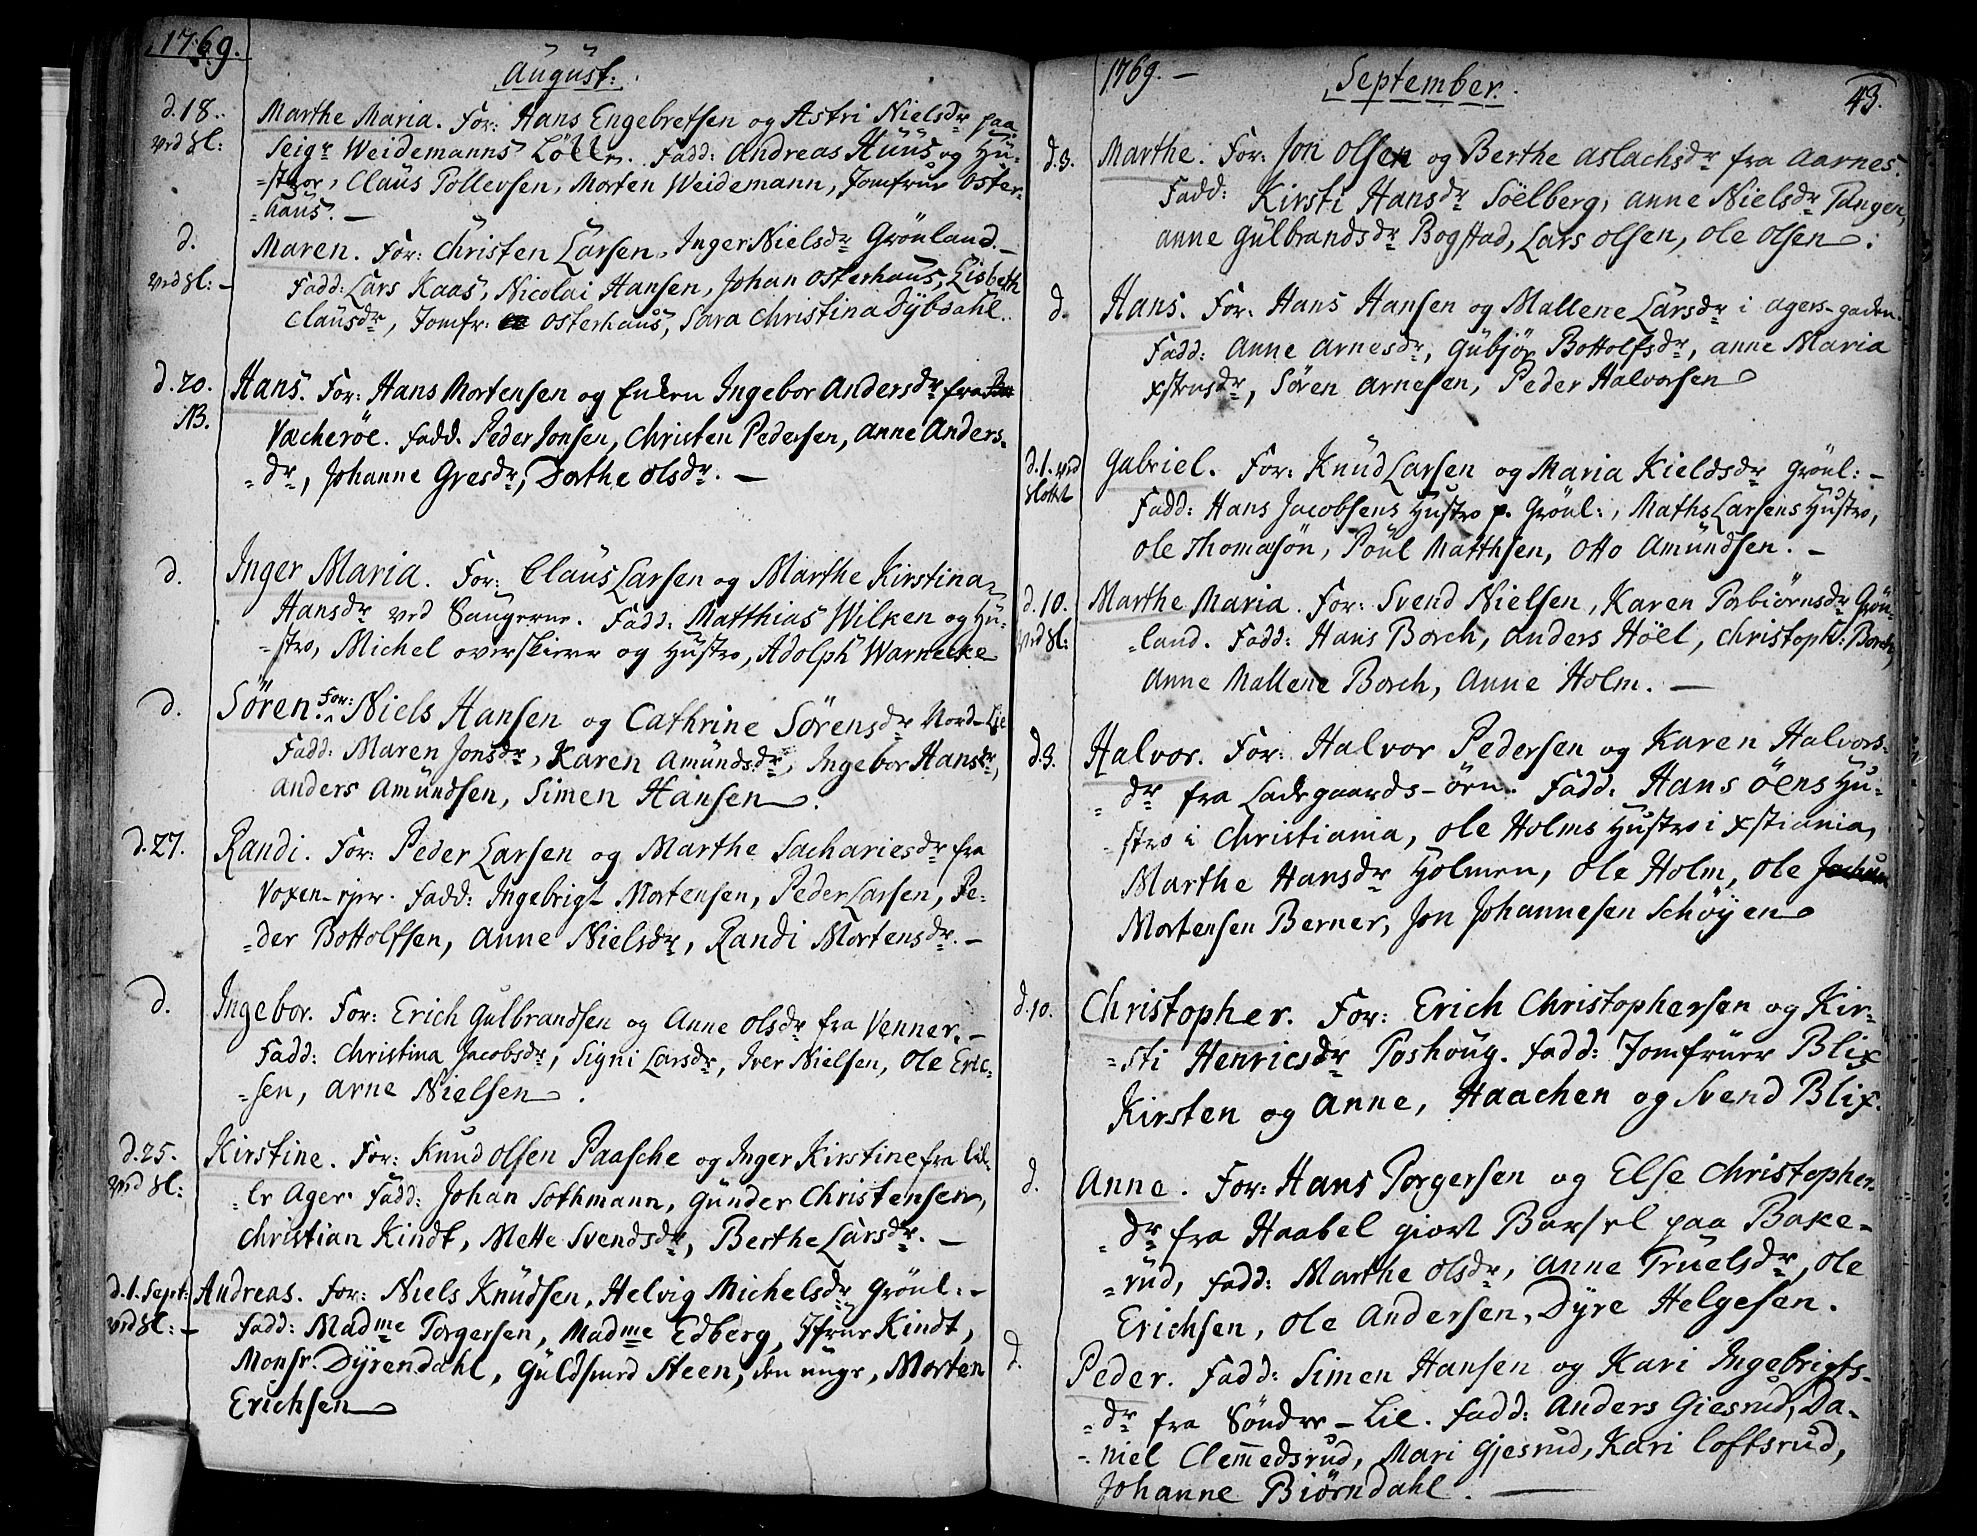 1769.
August.
d. 18. Marthe Maria. For: Hans Engebretsen og Astri Nielsdr paa
ved Sl: Seigr Weidemanns Lölle. Fadd: Andreas Hüüs og Hü-
-stroe, Claus Pollevsen, Morten Weidemann, Jomfrue Oster-
-haus. -
d. Maren. For: Christen Larsen, Inger Nielsdr Grönland. -
ved Sl: - Fadd: Lars Kaas, Nicolai Hansen, Johan Osterhaus, Lisbeth
Clausdr, Jomfr: Osterhaus, Sara Christina Dÿbdahl.
d. 20. Hans. For: Hans Mortensen og Enken Ingebor Andersdr fra
NB. Vækeröe. Fadd. Peder Jonsen, Christen Pedersen, Anne Anders-
-dr, Johanne Gresdr, Dorthe Olsdr. -
d. Inger Maria. For: Claus Larsen og Marthe Kirstina
Hansdr ved Saugerne. Fadd: Matthias Wilken og Hu-
-stro, Michel overskierer og Hustro, Adolph Warnecke
d. Sören. For: Niels Hansen og Cathrine Sörensdr Nord-Lie
Fadd: Maren Jonsdr, Karen Amundsdr, Ingebor Hansdr,
Anders Amündsen, Simen Hansen.
d. 27. Randi. For: Peder Larsen og Marthe Sachariesdr fra
Voxen-ejer. Fadd: Ingebrigt Mortensen, Peder Larsen, Pe-
-der Bottolfsen, Anne Nielsdr, Randi Mortensdr. -
d. Ingebor. For: Erich Gulbrandsen og Anne Olsdr fra Venner. -
Fadd: Christina Jacobsdr, Signi Larsdr, Iver Nielsen, Ole Eric-
-sen, Arne Nielsen.
d. 25. Kirstine. For: Knud Olsen Paasche og Inger Kirstine fra lil-
ved Sl: -le Ager. Fadd: Johan Sothmann, Günder Christensen,
Christian Kindt, Mette Svendsdr, Berthe Larsdr. -
d. 1. Sept: Andreas. For: Niels Knüdsen, Helvig Michelsdr Grönl: -
ved Sl: - Fadd: Madme Torgersen, Madme Edberg, Jfrue Kindt,
Monsr. Dÿrendahl, Güldsmed Steen, den unge, Morten
Erichsen
1769. -
September.
43.
d. 3. Marthe. For: Jon Olsen og Berthe Aslachsdr fra Aarnes.
Fadd: Kirsti Hansdr Söelberg, Anne Nielsdr Tangen,
Anne Gülbrandsdr Bogstad, Lars Olsen, Ole Olsen.
d. Hans. For: Hans Hansen og Mallene Larsdr i Agers-gaden.
Fadd: Anne Arnesdr, Gubjør Bottolfsdr, Anne Maria
Xstensdr, Sören Arnesen, Peder Halvorsen
d. 1. ved Gabriel. For: Knud Larsen og Maria Kieldsdr Grönl: -
Slottet Fadd: Hans Jacobsens Hustro p. Grönl:, Maths Larsens Hustro,
Ole Thomasön, Poul Matthsen, Otto Amündsen. -
d. 10. Marthe Maria. For: Svend Nielsen, Karen Torbiörnsdr Grön-
ved Sl: -land. Fadd: Hans Borch, Anders Höel, Christoph: Borch,
Anne Mallene Borch, Anne Holm. -
d. 3. Halvor. For: Halvor Pedersen og Karen Halvors-
-dr fra Ladegaards-öen. Fadd: Hans Öens Hu-
-stro i Christiania, Ole Holms Hustro i Xstiania,
Marthe Hansdr Holmen, Ole Holm, Ole
Mortensen Berner, Jon Johannesen Schöyen
d. 10. Christopher. For: Erich Christophersen og Kir-
-sti Henricsdr Poshoug. Fadd: Jomfrüer Blix
Kirsten og Anne, Haachen og Svend Blix.
d. Anne. For: Hans Torgersen og Else Christopher-
-dr fra Haabel giort Barsel paa Bake-
-rud, Fadd: Marthe Olsdr, Anne Truelsdr, Ole
Erichsen, Ole Andersen, Dÿre Helgesen.
d. Peder. Fadd: Simen Hansen og Kari Ingebrigts-
-dr fra Söndre-Lie. Fadd: Anders Giesrud, Da-
-niel Clemmedsrud, Mari Gjesrud, Kari Loftsrud,
Johanne Biörndahl.